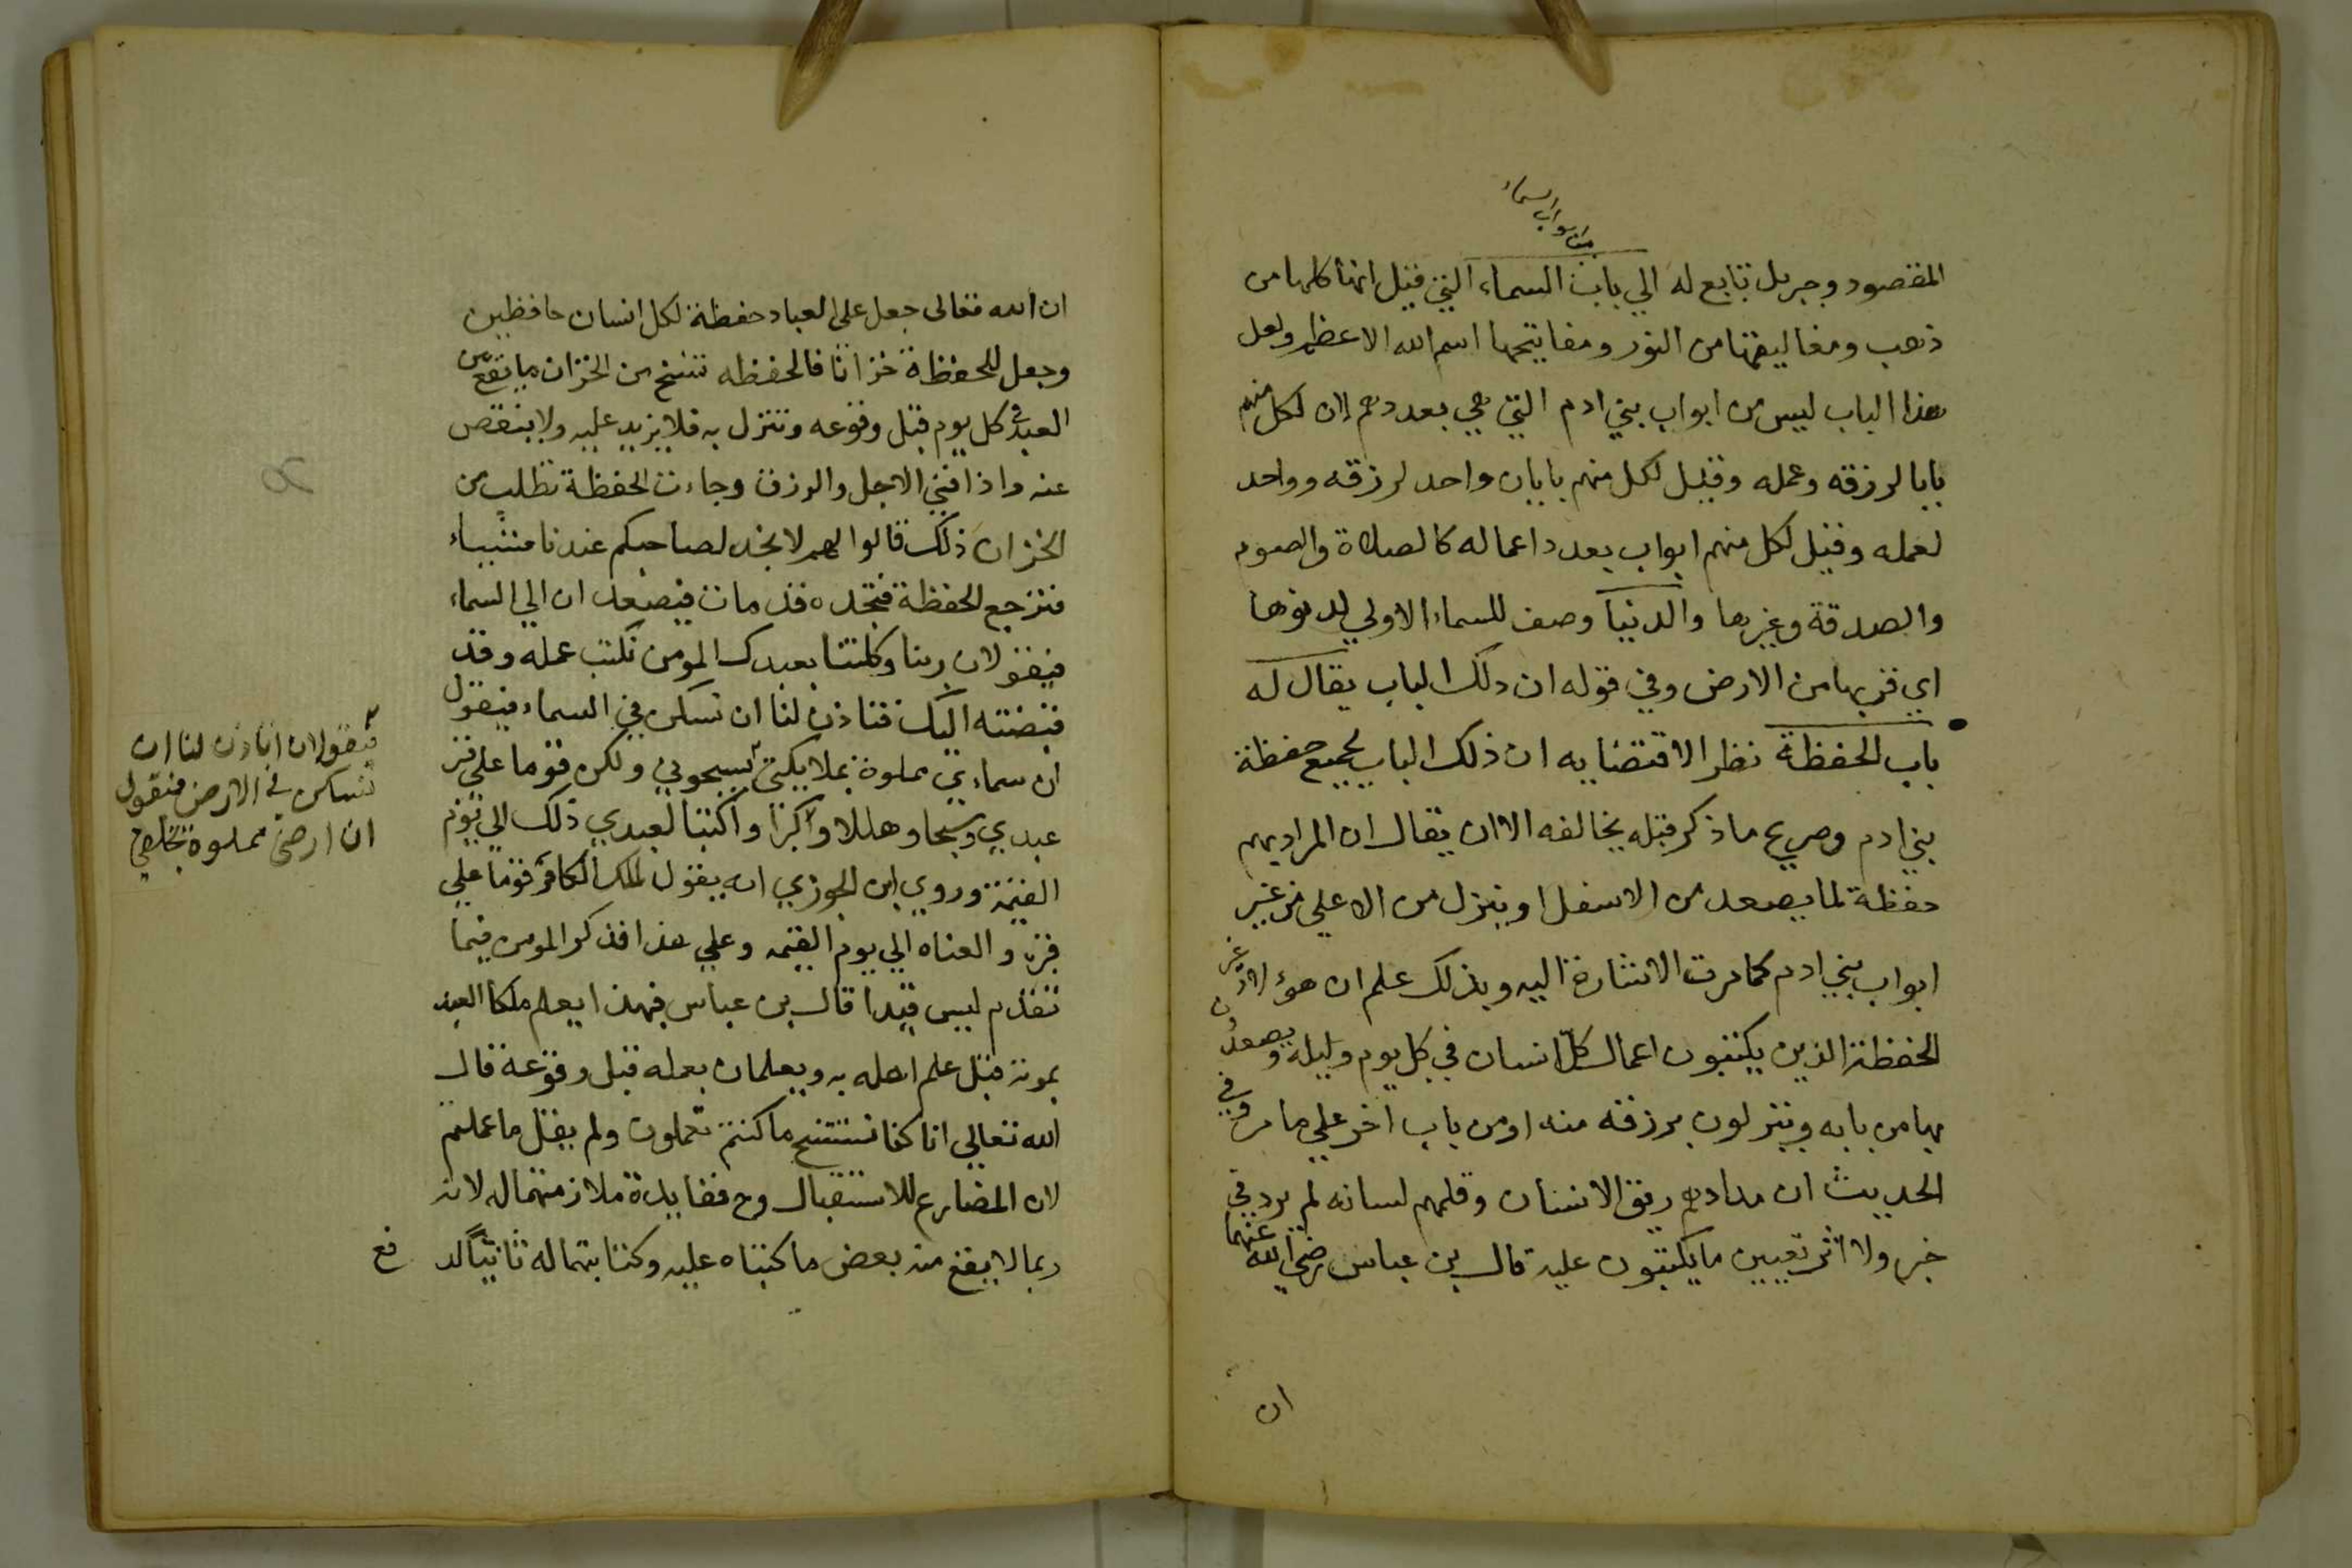 من ابواب السماء
المقصود وجبريل تابع له الي باب السماء التي قيل انها كلها من
ذهب ومغاليقها من النور ومفاتيحها اسم الله الاعظم ولعل
هذا الباب ليس من ابواب بني ادم التي هي بعددهم لان لكل منهم
بابا لرزقه وعمله وقيل لكل منهم بابان واحد لرزقه وواحد
لعمله وقيل لكل منهم ابواب بعدد اعماله كالصلاة والصوم
والصدقة وغيرها والدنيا وصف للسماء الاولي لدنوها
اي قربها من الارض وفي قوله ان ذلك الباب يقال له
باب الحفظة نظر لاقتضايه ان ذلك الباب لجميع حفظة
بني ادم وصريح ما ذكر قبله يخالفه الا ان يقال ان المراد بهم
حفظة لما يصعد من الاسفل او ينزل من الاعلي من غير
ابواب بني ادم كما مرت الاشارة اليه وبذلك علم ان هؤلاء غير
الحفظة الذين يكتبون اعمال كل انسان في كل يوم وليلة ويصعدون
بها من بابه وينزلون برزقه منه او من باب اخر علي ما مر وفي
الحديث ان مدادهم ريق الانسان وقلمهم لسانه لم يرد في
خبر ولا اثر تعيين ما يكتبون عليه قال بن عباس رضي الله عنهما
ان
ان الله تعالى جعل على العباد حفظة لكل انسان حافظين
وجعل للحفظة خزانا فالحفظه تنسخ من الخزان ما يقع من
العبد في كل يوم قبل وقوعه وتنزل به فلا يزيد عليه ولا ينقص
عنه واذا فني الاجل والرزق وجاءت الحفظة تطلب من
الخزان ذلك قالوا لهم لا نجد لصاحبكم عندنا شيئا
فترجع الحفظة فتجده قد مات فيصعدان الي السماء
فيقولان ربنا وكلتنا بعبدك المومن نكتب عمله وقد
قبضته اليك فتاذن لنا ان نسكن في السماء فيقول
ان سماءي مملوة بملايكتي يسبحوني ولكن قوما علي قبر
عبدي وسبحا وهللا وكبرا واكتبا لعبدي ذلك الي يوم
القيمة وروي ابن الجوزي انه يقول لملك الكافر قوما علي
قبره والعناه الي يوم القيمه وعلي هذا فذكر المومن فيما
تقدم ليس قيدا قال بن عباس فهذا يعلم ملكا العبد
بموته قبل علم اهله به ويعلمان بعمله قبل وقوعه قال
الله تعالي انا كنا نستنسخ ما كنتم تعملون ولم يقل ما عملتم
لان المضارع للاستقبال وح ففايدة ملازمتهما له لانه
ربما لا يقع منه بعض ما كتبناه عليه وكتابتهما له ثانيا لد
فع
فيقولان اتاذن لنا ان
نسكن في الارض فيقول
ان ارضي مملوة بخلقي